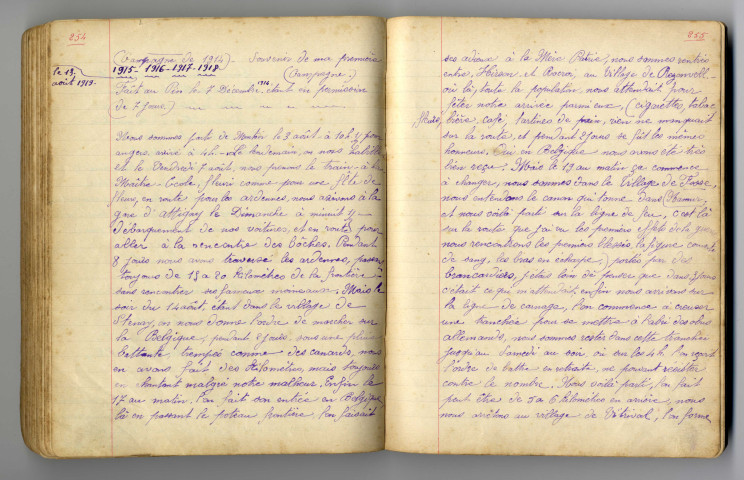 254
(Campagne de 1914) - Souvenir de ma première
le 19 1915 - 1916 - 1917 - 1918 (Campagne.)
août 1919. Fait au Pin le 7 Décembre 1914 étant en permission
de 7 jours.)
Nous sommes parti de le 3 août à 10h ½ pour
angers arrivé à 4h - Le lendemain, on nous habille
et le Vendredi 7 août, nous prenons le train à la
Maître-École, fleuri comme pour une fête de
fleurs, en route pour les ardennes, nous arrivons à la
gare d'Attigny le Dimanche à minuit ½
débarquement de nos voitures, et en route pour
aller à la rencontre des bôches. Pendant
8 jours nous avons traversé les ardennes, passer
toujours de 15 à 20 kilomètres de la frontière
sans rencontrer ses fameux moineaux. Mais le
soir du 14 août, étant dans le village de
on nous donne l'ordre de marcher sur
la Belgique, pendant 2 jours, sous une pluie
battante, trempés comme des canards, nous
en avons fait des kilomètres, mais toujours
en chantant malgré notre malheur. Enfin le
17 au matin. l'on fait son entrée en Belgique
là en passant le poteau frontière, l'on faisait
255
ses adieux à la Mère Patrie, nous sommes rentrés
entre, Hirson et Rocroi, au Village de
où là, toute la population, nous attendait pour
fêter notre arrivée parmi eux, (cigarettes, tabac
bière, café, tartines de pain, rien ne manquait
sur la route, et pendant 2 jours se fut les mêmes
honneurs. Oui en Belgique nous avons été très
bien reçu. Mais le 19 au matin ça commence
à changer, nous sommes dans le Village de Fosse,
nous entendons le canon qui tonne dans Namur,
et nous voilà parti sur la ligne de feu, c'est là
sur la route que j'ai eu les premiers effets de la guerre
nous rencontrons les premiers blessés, la figure couverte
de sang, les bras en écharpe, portés par des
brancardiers, j'étais loin de penser que dans
c'était ce qui m'attendait, enfin nous arrivons sur
la ligne de carnage, l'on commence à creuser
une tranchée pour se mettre à l'abri des obus
allemands, nous sommes restés dans cette tranchée
jusqu'au Samedi au soir où sur les 4h l'on reçoit
l'ordre de battre en retraite, ne pouvant résister
contre le nombre. Nous voilà parti, l'on fait
peut être de 5 à 6 kilomètres en arrière, nous
nous arrêtons au village de Vitrival, l'on forme